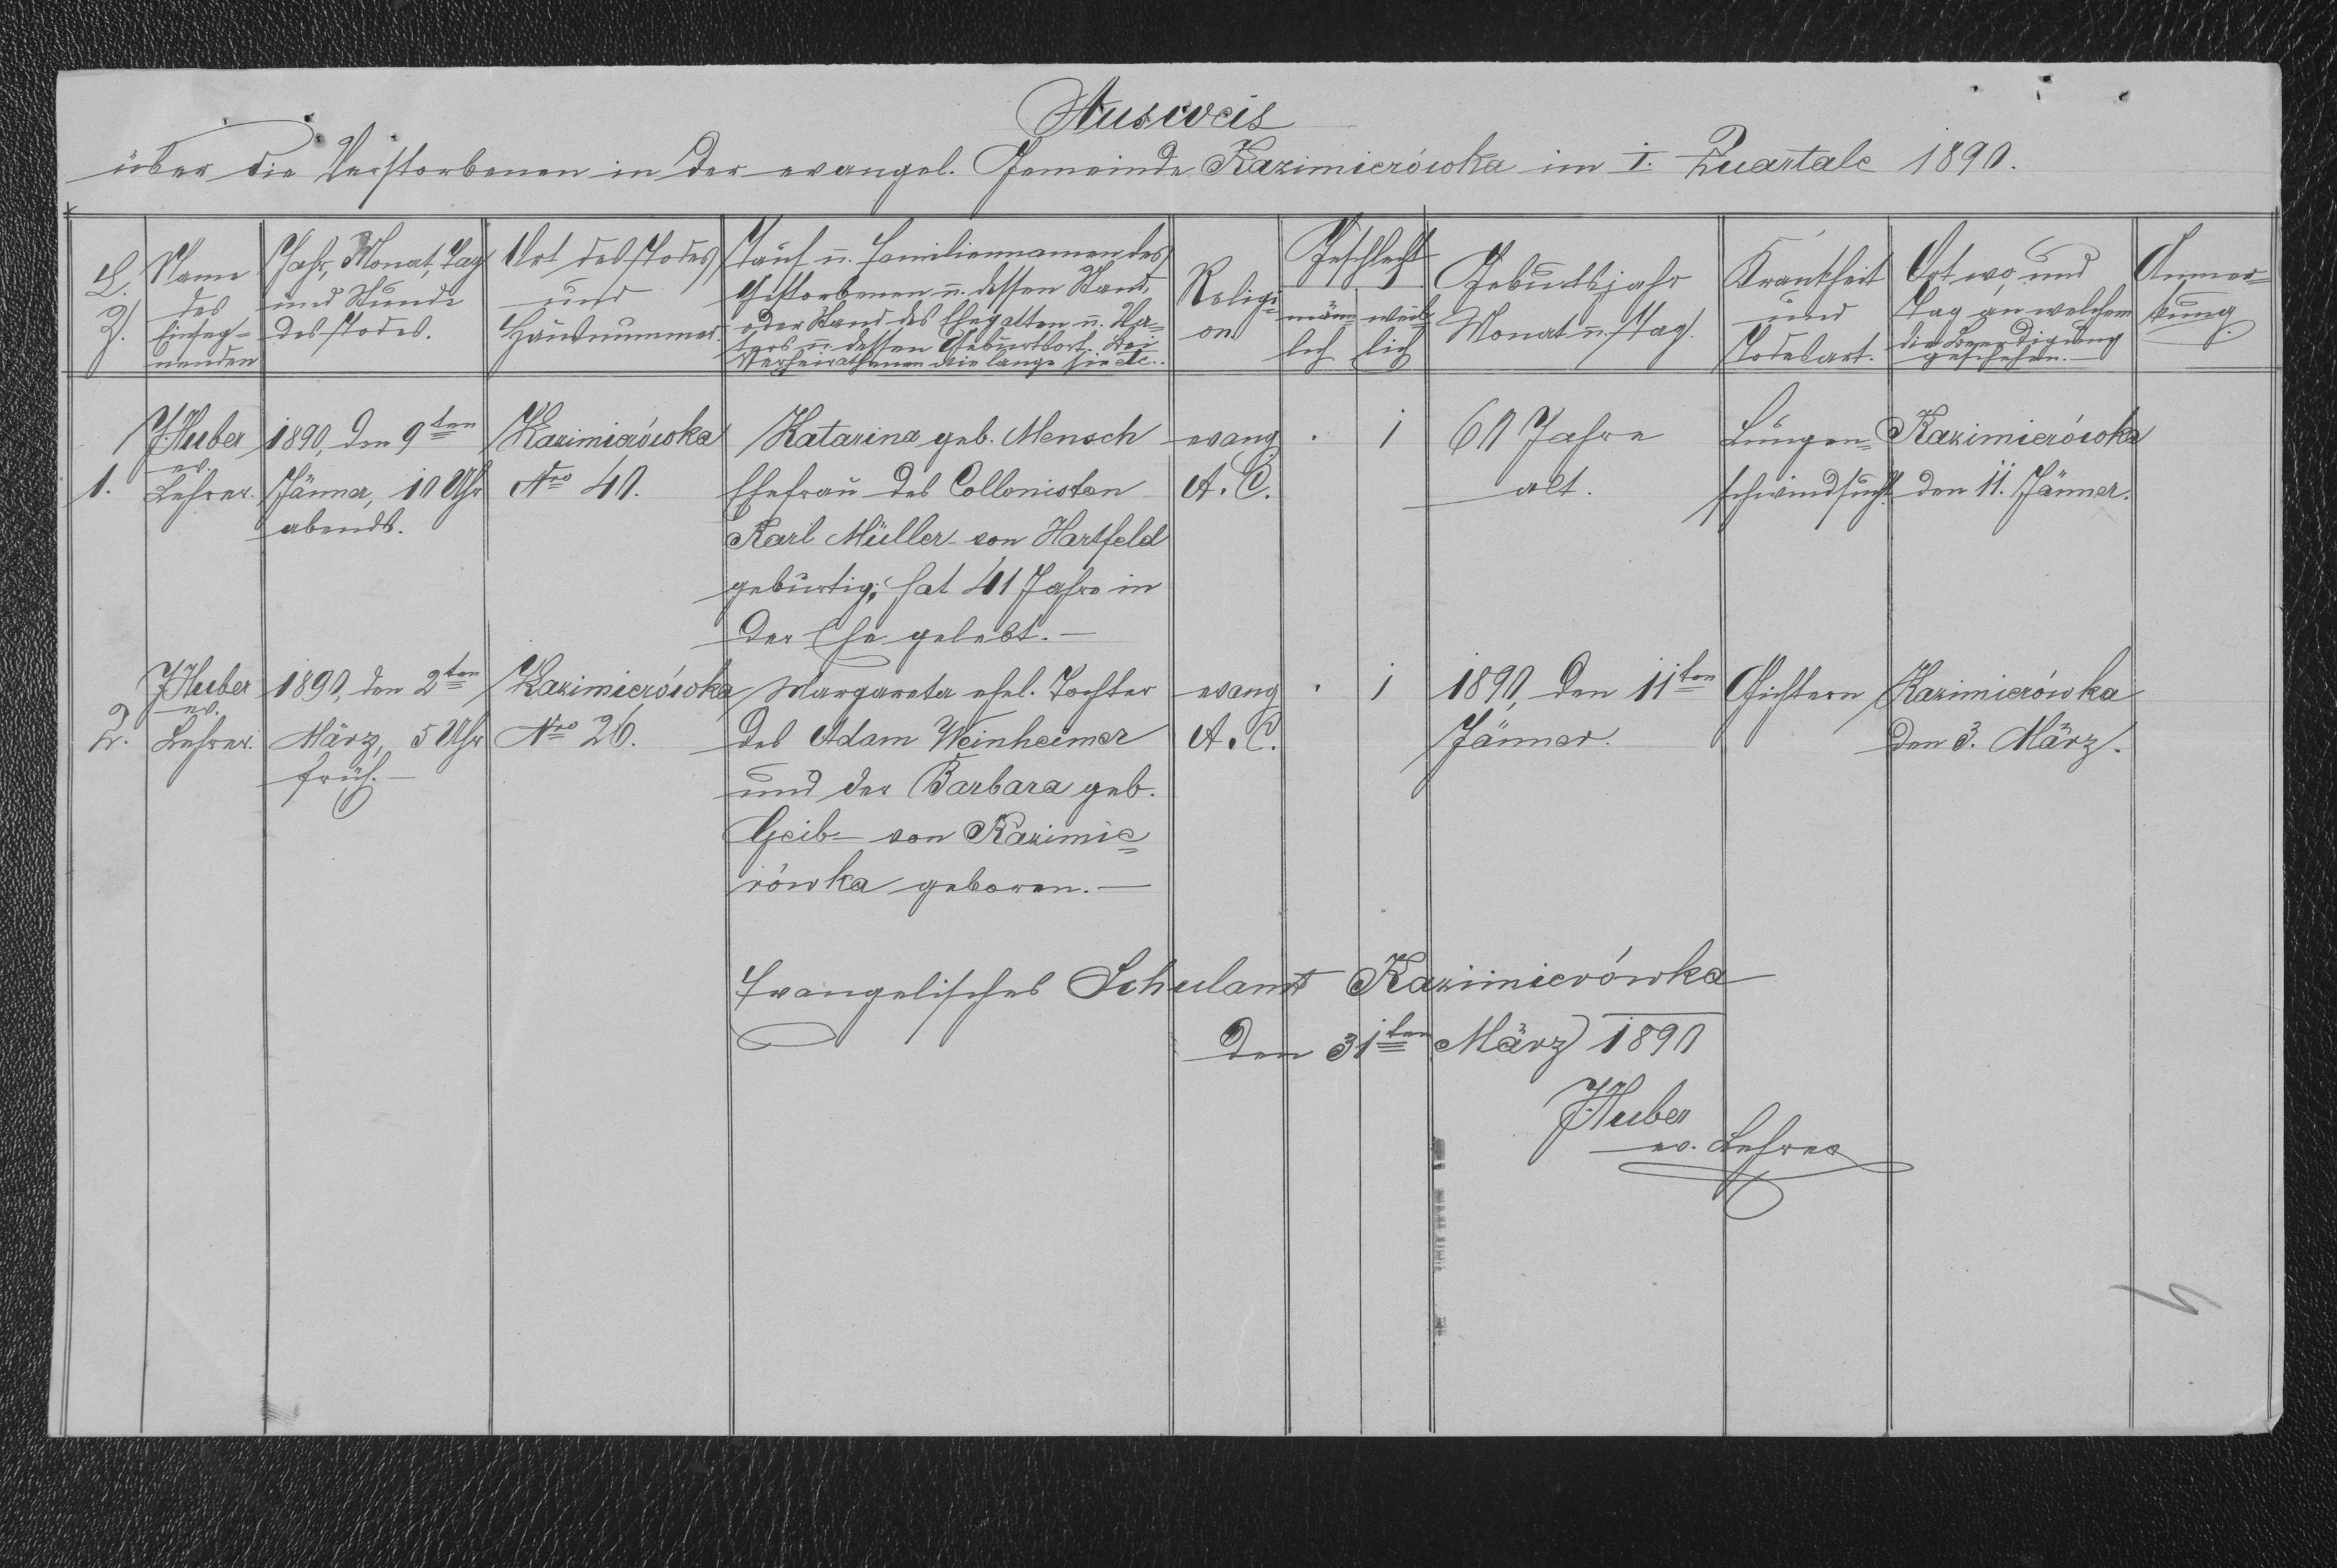 Ausweis
über die Verstorbenen in der evangel. Gemeinde Kazimierówka im I. Quartale 1890.
L. Z.
Name
des
Einseg-
nenden
Jahr, Monat, Tag
und Stunde
des Todes.
Ort des Todes
und
Hausnummer.
Tauf u. Familiennamen des
Gestorbenen u. dessen Stand,
oder Stand des Ehegatten u. Va-
ters u. dessen Geburtsort. Bei
Verheiratheten wie lange sie etc.
Religi-
on
Geschlecht
männ-
lich
weib-
lich
Geburtsjahr
Monat u. Tag.
Krankheit
und
Todesart.
Ort wo, und
Tag an welchem
die Beerdigung
geschehen.
Anmer-
kung.
1.
J. Huber
ev.
Lehrer.
1890, den 9ten
Jänner, 10 Uhr
abends.
Kazimierówka
Nro 40.
Katarina geb. Mensch
Ehefrau des Collonisten
Karl Müller von Hartfeld
gebürtig; hat 41 Jahre in
der Ehe gelebt.—
evang
A. C.
.
1
60 Jahre
alt.
Lungen-
schwindsucht.
Kazimierówka
den 11. Jänner.
2.
J. Huber
ev.
Lehrer.
1890, den 2ten
März, 5 Uhr
früh.—
Kazimierówka
Nro 26.
Margareta ehel. Tochter
des Adam Weinheimer
und der Barbara geb.
Geib— von Kazimie-
rówka geboren.—
evang
A. C.
.
1
1890, den 11ten
Jänner.
Gichtern
Kazimierówka
den 3. März.
Evangelisches Schulamt Kazimierówka
den 31ten März 1890
J. Huber
ev. Lehrer